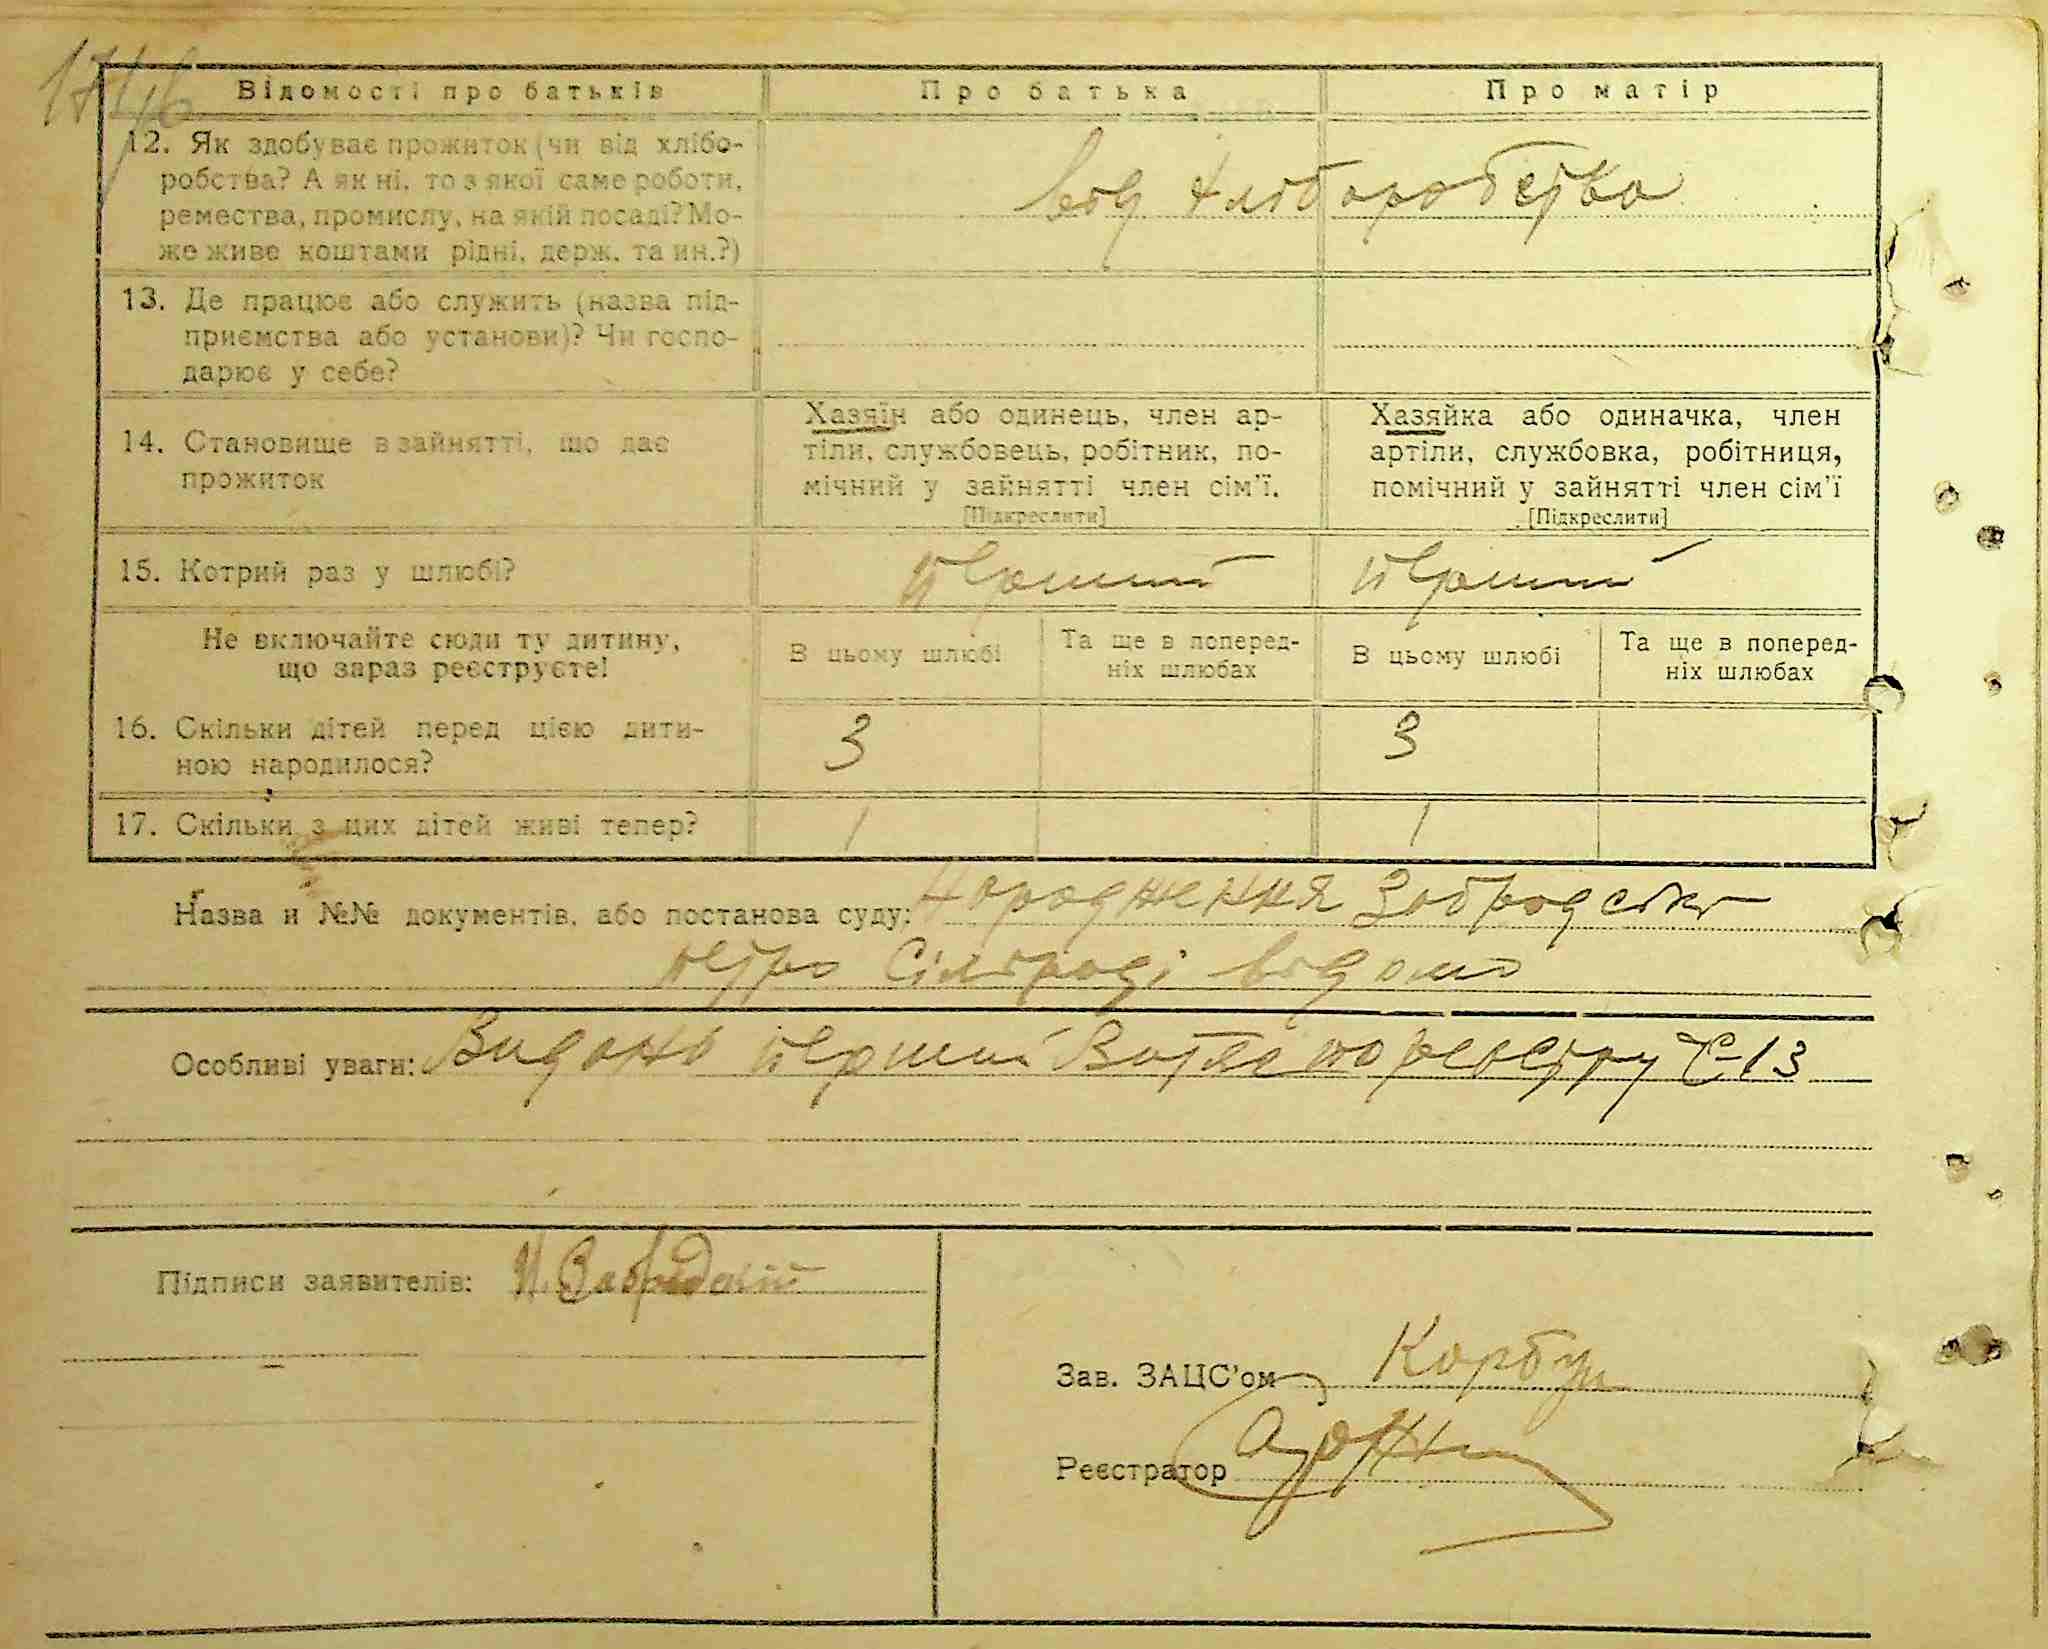 Відомості про батьків
Про батька
Про матір
12. Як здобуває прожиток (чи від хлібо-
робства? А як ні, то з якої саме роботи,
ремества, промислу, на якій посаді? Мо-
же живе коштами рідні, держ. та ин.?)
від хліборобства
13. Де працює або служить (назва під-
приємства або установи)? Чи госпо-
дарює у себе?
14. Становище в зайнятті, що дає
прожиток
Хазяїн або одинець, член ар-
тіли, службовець, робітник, по-
мічний у зайнятті член сім'ї.
[Підкреслити]
Хазяйка або одиначка, член
артіли, службовка, робітниця,
помічний у зайнятті член сім'ї
[Підкреслити]
15. Котрий раз у шлюбі?
перший
перший
Не включайте сюди ту дитину,
що зараз реєструєте!
В цьому шлюбі
Та ще в поперед-
ніх шлюбах
В цьому шлюбі
Та ще в поперед-
ніх шлюбах
16. Скільки дітей перед цією дити-
ною народилося?
3
3
17. Скільки з цих дітей живі тепер?
1
1
Назва и №№ документів, або постанова суду:
народження
Сільраді відомо
Особливі уваги: Видано перший Витяг по реєстру № 13
Підписи заявителів:
Зав. ЗАЦС'ом
Реєстратор